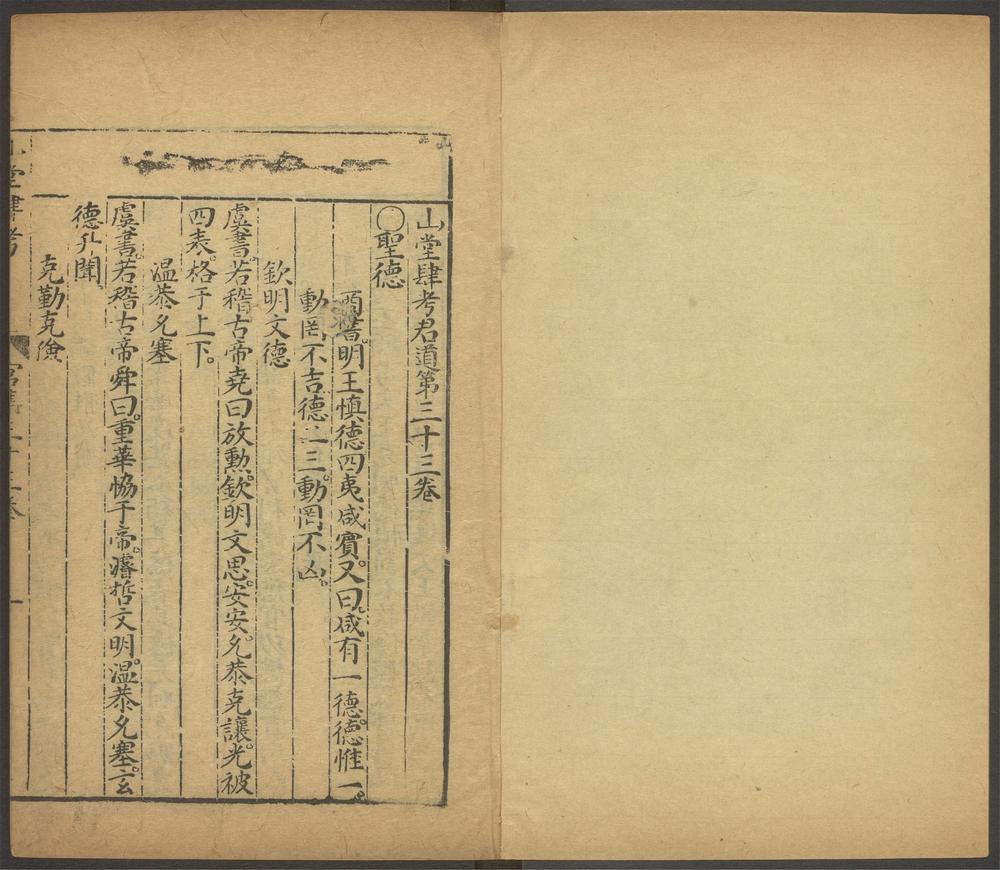 山堂肆考君道第三十三卷
○聖德
書。明王慎德四夷咸賓。又曰。咸有一德。德惟一。
動罔不吉。德二三。動罔不凶。
欽明文德
虞書。若稽古帝堯曰放勲。欽明文思。安安。允恭克讓。光被
四表。格于上下。
温恭允塞
虞書。若稽古帝舜曰。重華協于帝。濬哲文明。温恭允塞。玄
德升聞。
克勤克儉
山堂肆考